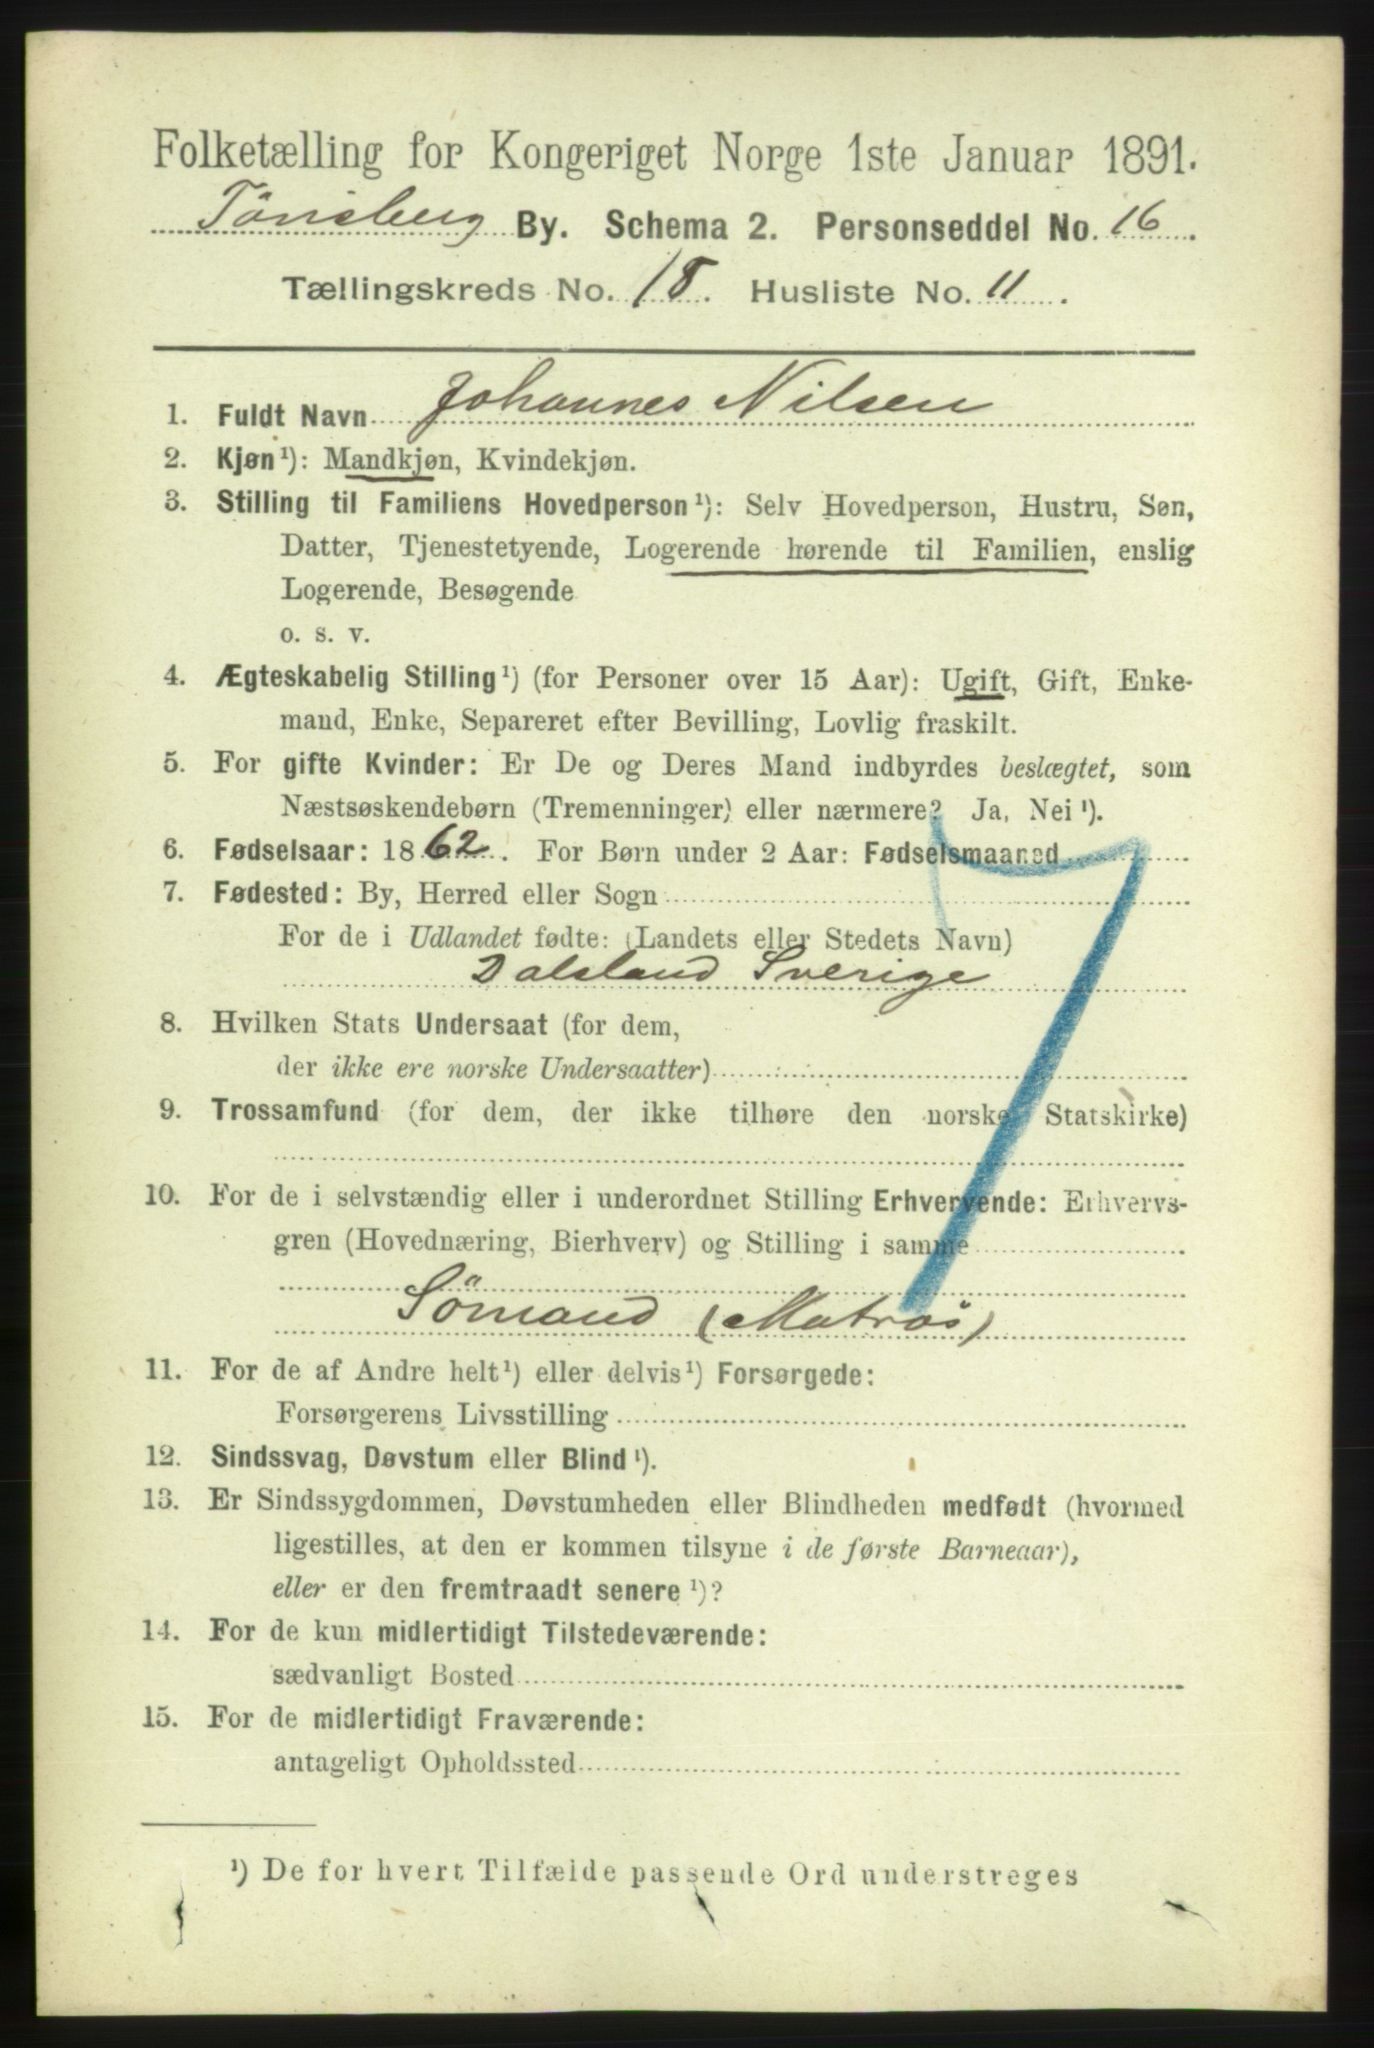 Folketælling for Kongeriget Norge 1ste Januar 1891.
Tönsberg By. Schema 2. Personseddel No. 16.
Tællingskreds No. 18. Husliste No. 11.
1. Fuldt Navn Johannes Nilsen
2. Kjøn¹): Mandkjøn, Kvindekjøn.
3. Stilling til Familiens Hovedperson¹): Selv Hovedperson, Hustru, Søn,
Datter, Tjenestetyende, Logerende hørende til Familien, enslig
Logerende, Besøgende
o. s. v.
4. Ægteskabelig Stilling¹) (for Personer over 15 Aar): Ugift, Gift, Enke-
mand, Enke, Separeret efter Bevilling, Lovlig fraskilt.
5. For gifte Kvinder: Er De og Deres Mand indbyrdes beslægtet, som
Næstsøskendebørn (Tremenninger) eller nærmere? Ja, Nei¹).
6. Fødselsaar: 1862. For Børn under 2 Aar: Fødselsmaaned
7. Fødested: By, Herred eller Sogn
For de i Udlandet fødte: (Landets eller Stedets Navn)
Dalsland Sverige
8. Hvilken Stats Undersaat (for dem,
der ikke ere norske Undersaatter)
9. Trossamfund (for dem, der ikke tilhøre den norske Statskirke)
10. For de i selvstændig eller i underordnet Stilling Erhvervende: Erhvervs-
gren (Hovednæring, Bierhverv) og Stilling i samme
Sömand (Matros)
11. For de af Andre helt¹) eller delvis¹) Forsørgede:
Forsørgerens Livsstilling
12. Sindssvag, Døvstum eller Blind¹).
13. Er Sindssygdommen, Døvstumheden eller Blindheden medfødt (hvormed
ligestilles, at den er kommen tilsyne i de første Barneaar),
eller er den fremtraadt senere¹)?
14. For de kun midlertidigt Tilstedeværende:
sædvanligt Bosted
15. For de midlertidigt Fraværende:
antageligt Opholdssted
¹) De for hvert Tilfælde passende Ord understreges